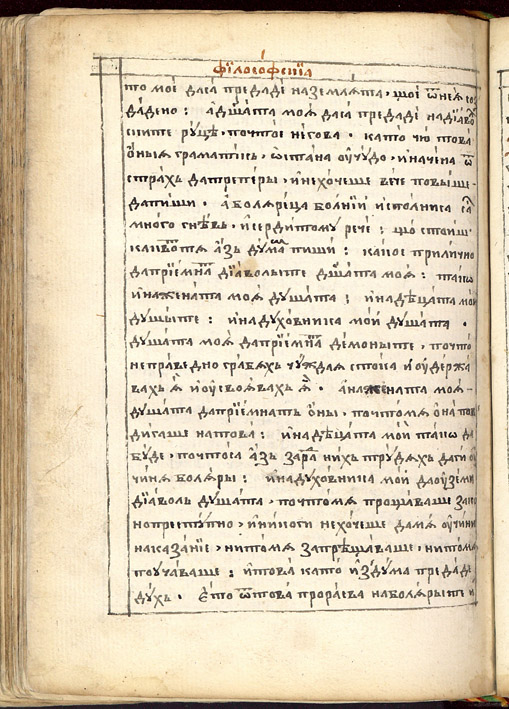 фїлосѡфскїѧ
то мое да са предаде на землѧта, що е ѿ неѧ соз
дадено : а дш҃ата моѧ да са предаде на дїавол
ските рꙋце, почто е негова . като чꙋ това
ѡныѧ граматикь, ѡстана оу чꙋдо, и начена ѿ
страхь да трепери, и не хочеше вече повыше
да пиши . а болѧреца болнїй исполнисѧ съ
много гнѣвь, и сердитомꙋ рече : що стоиш
каквото тѧ азь дꙋмамь пиши : какое прилично
да прїемнат дїаволыте дш҃ата моѧ : такѡ
и на жената моѧ дꙋшата ; и на дѣцата мои
дꙋшыте : и на дꙋховника мой дꙋшата .
дꙋшата моѧ да прїемнат демоныте, почто
неправедно грабѧхь чꙋждаѧ стока и оудержа
вахь ѧ и оусвоѧвахь ѧ . а на жената моѧ
дꙋшата да прїемнать ѡны, почто мѧ ѡна под
дигаше на това : и на дѣцата мои такѡ да
бꙋде, почто са азь зарад нихь трꙋдѧхь да ги оу
чинѧ болѧры : и на дꙋховника мой да оуземи
дїаволь дꙋшата, почто мѧ прощаваше зако
нопрестꙋпно, и никоги не хочеше да мѧ оучини
наказанїе, нито мѧ запрѣщаваше, нито мѧ
поучаваше : и това като издꙋма предаде
дꙋхь . ето ѿ това проклева на болѧрыте и